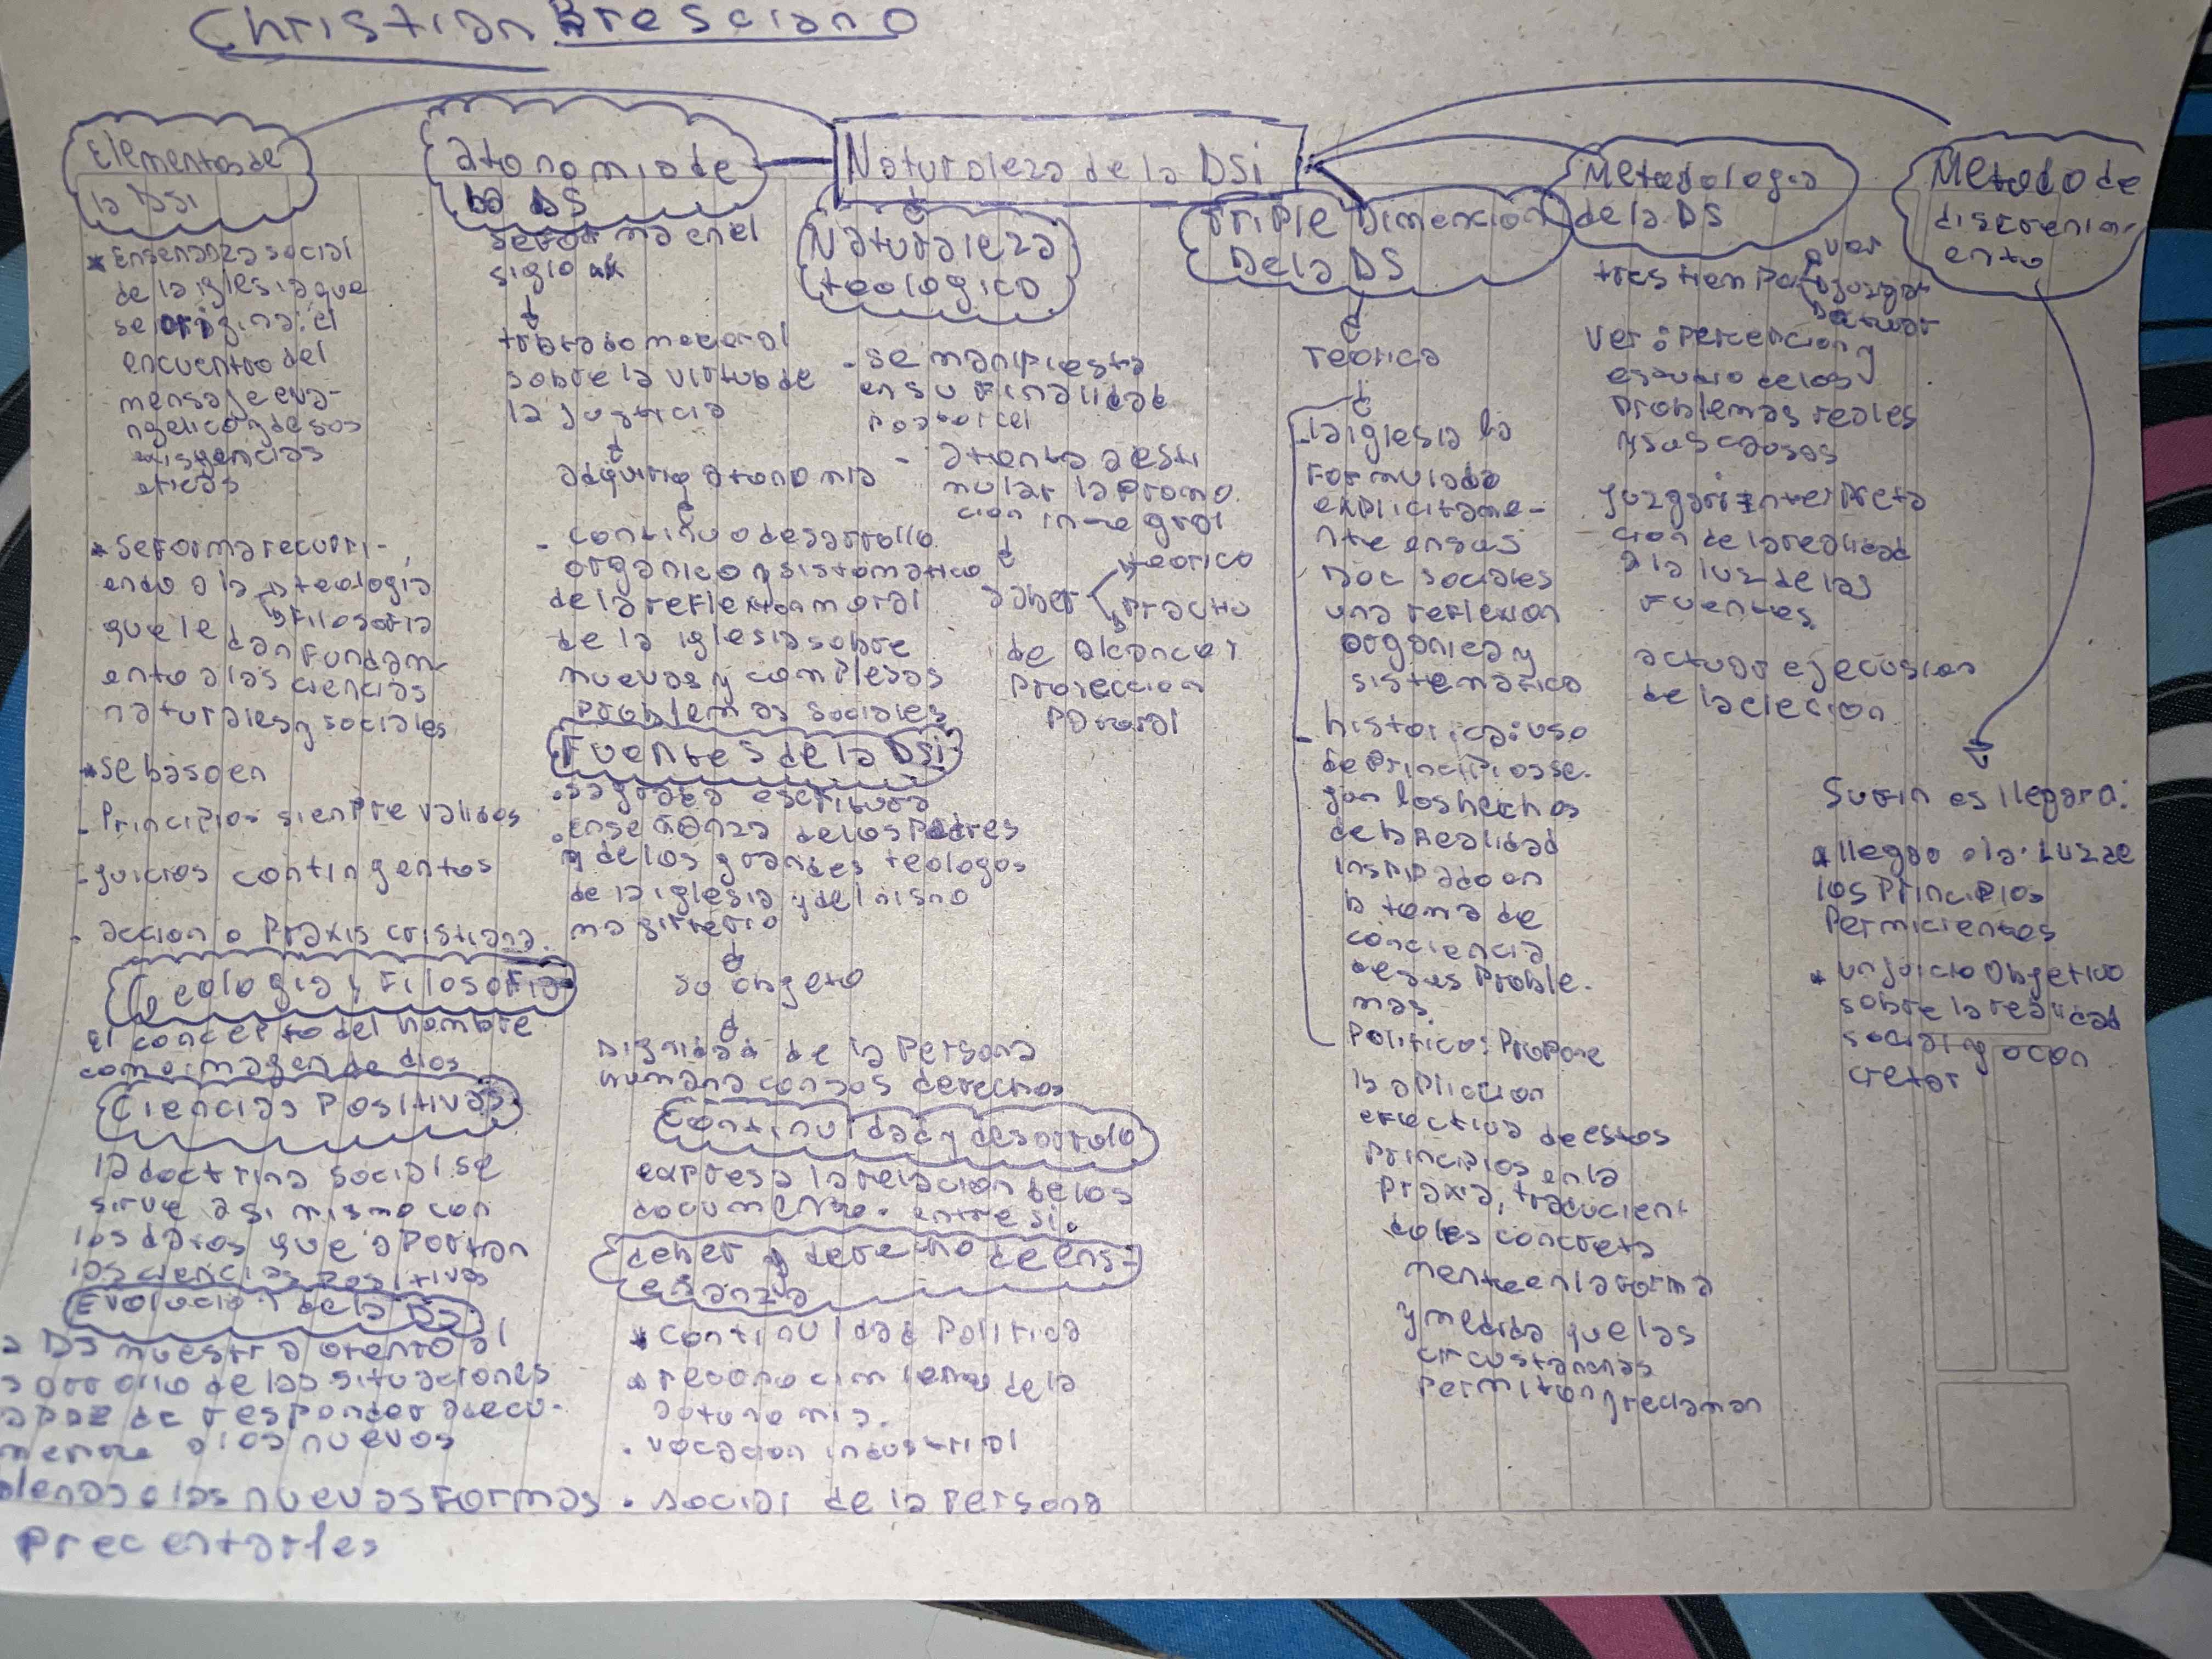 Christian Bresciano
Naturaleza de la DSi
Elementos de
la DSi
* Ensenanza social
de la iglesia que
se origina: el
encuentro del
mensaje eva-
ngelico y de sus
exigencias
eticas
* se forma recurri-
endo a la teologia
filosofia
que le dan fundam-
ento a las ciencias
naturales y sociales
* se basa en
- Principios siempre validos
- juicios contingentes
- accion o Praxis cristiana.
Teologia y Filosofia
El concepto del hombre
como imagen de dios
Ciencias Positivas
la doctrina social se
sirve asi mismo con
los datos que aportan
las ciencias positivas
Evolucion de la DS
a DS muestra atento al
sarrollo de las situaciones
apaz de responder adecu-
mente a los nuevos
blemas a las nuevas formas
Precentarles
atonomia de
la DS
se forma en el
siglo
tratado moral
sobre la virtud de
la justicia
adquirio atonomia
- continuo desarrollo
organico y sistematico
de la reflexion moral
de la iglesia sobre
nuevos y complejos
problemas sociales
Fuentes de la DSi
. sagrada escritura
. enseñanza de los Padres
y de los grandes teologos
de la iglesia y del mismo
magisterio
su objeto
Dignidad de la Persona
humana con sus derechos
Continuidad y desarrollo
expresa la relacion de los
documentos entre si.
deber y derecho de ens-
eñanza
* continuidad Politica
* reconocimiento de la
autonomia.
. vocacion industrial
. social de la Persona
Naturaleza
teologica
- se manifiesta
en su finalidad
Pastoral
- atenta a esti
mular la Promo-
cion integral
saber teorico
Practico
de alcance y
Proyeccion
Pastoral
Triple Dimencion
De la DS
Teorica
- la iglesia la
formulado
explicitame-
nte en sus
Doc sociales
una reflexion
organica y
sistematica
- historica: uso
de Principios se-
gun los hechos
de la Realidad
inspirado en
la toma de
conciencia
de sus Proble-
mas.
- Politica: Propone
la apliccion
efectiva de estos
Principios en la
Praxis, traducien-
doles concreta
mente en la forma
y medida que las
circustancias
Permiten y reclaman
Metodologia
de la DS
tres tiempos
ver
juzgar
actuar
ver: Percepcion y
estudio de los
Problemas reales
y sus causas
juzgar: interpreta
cion de la realidad
a la luz de las
fuentes.
actuar ejecusion
de la elecion
Metodo de
discrenimi-
ento
Su fin es llegara:
* llegar a la luz de
los Principios
Permicientes
* un juicio Objetivo
sobre la realidad
social y ocon
cretar